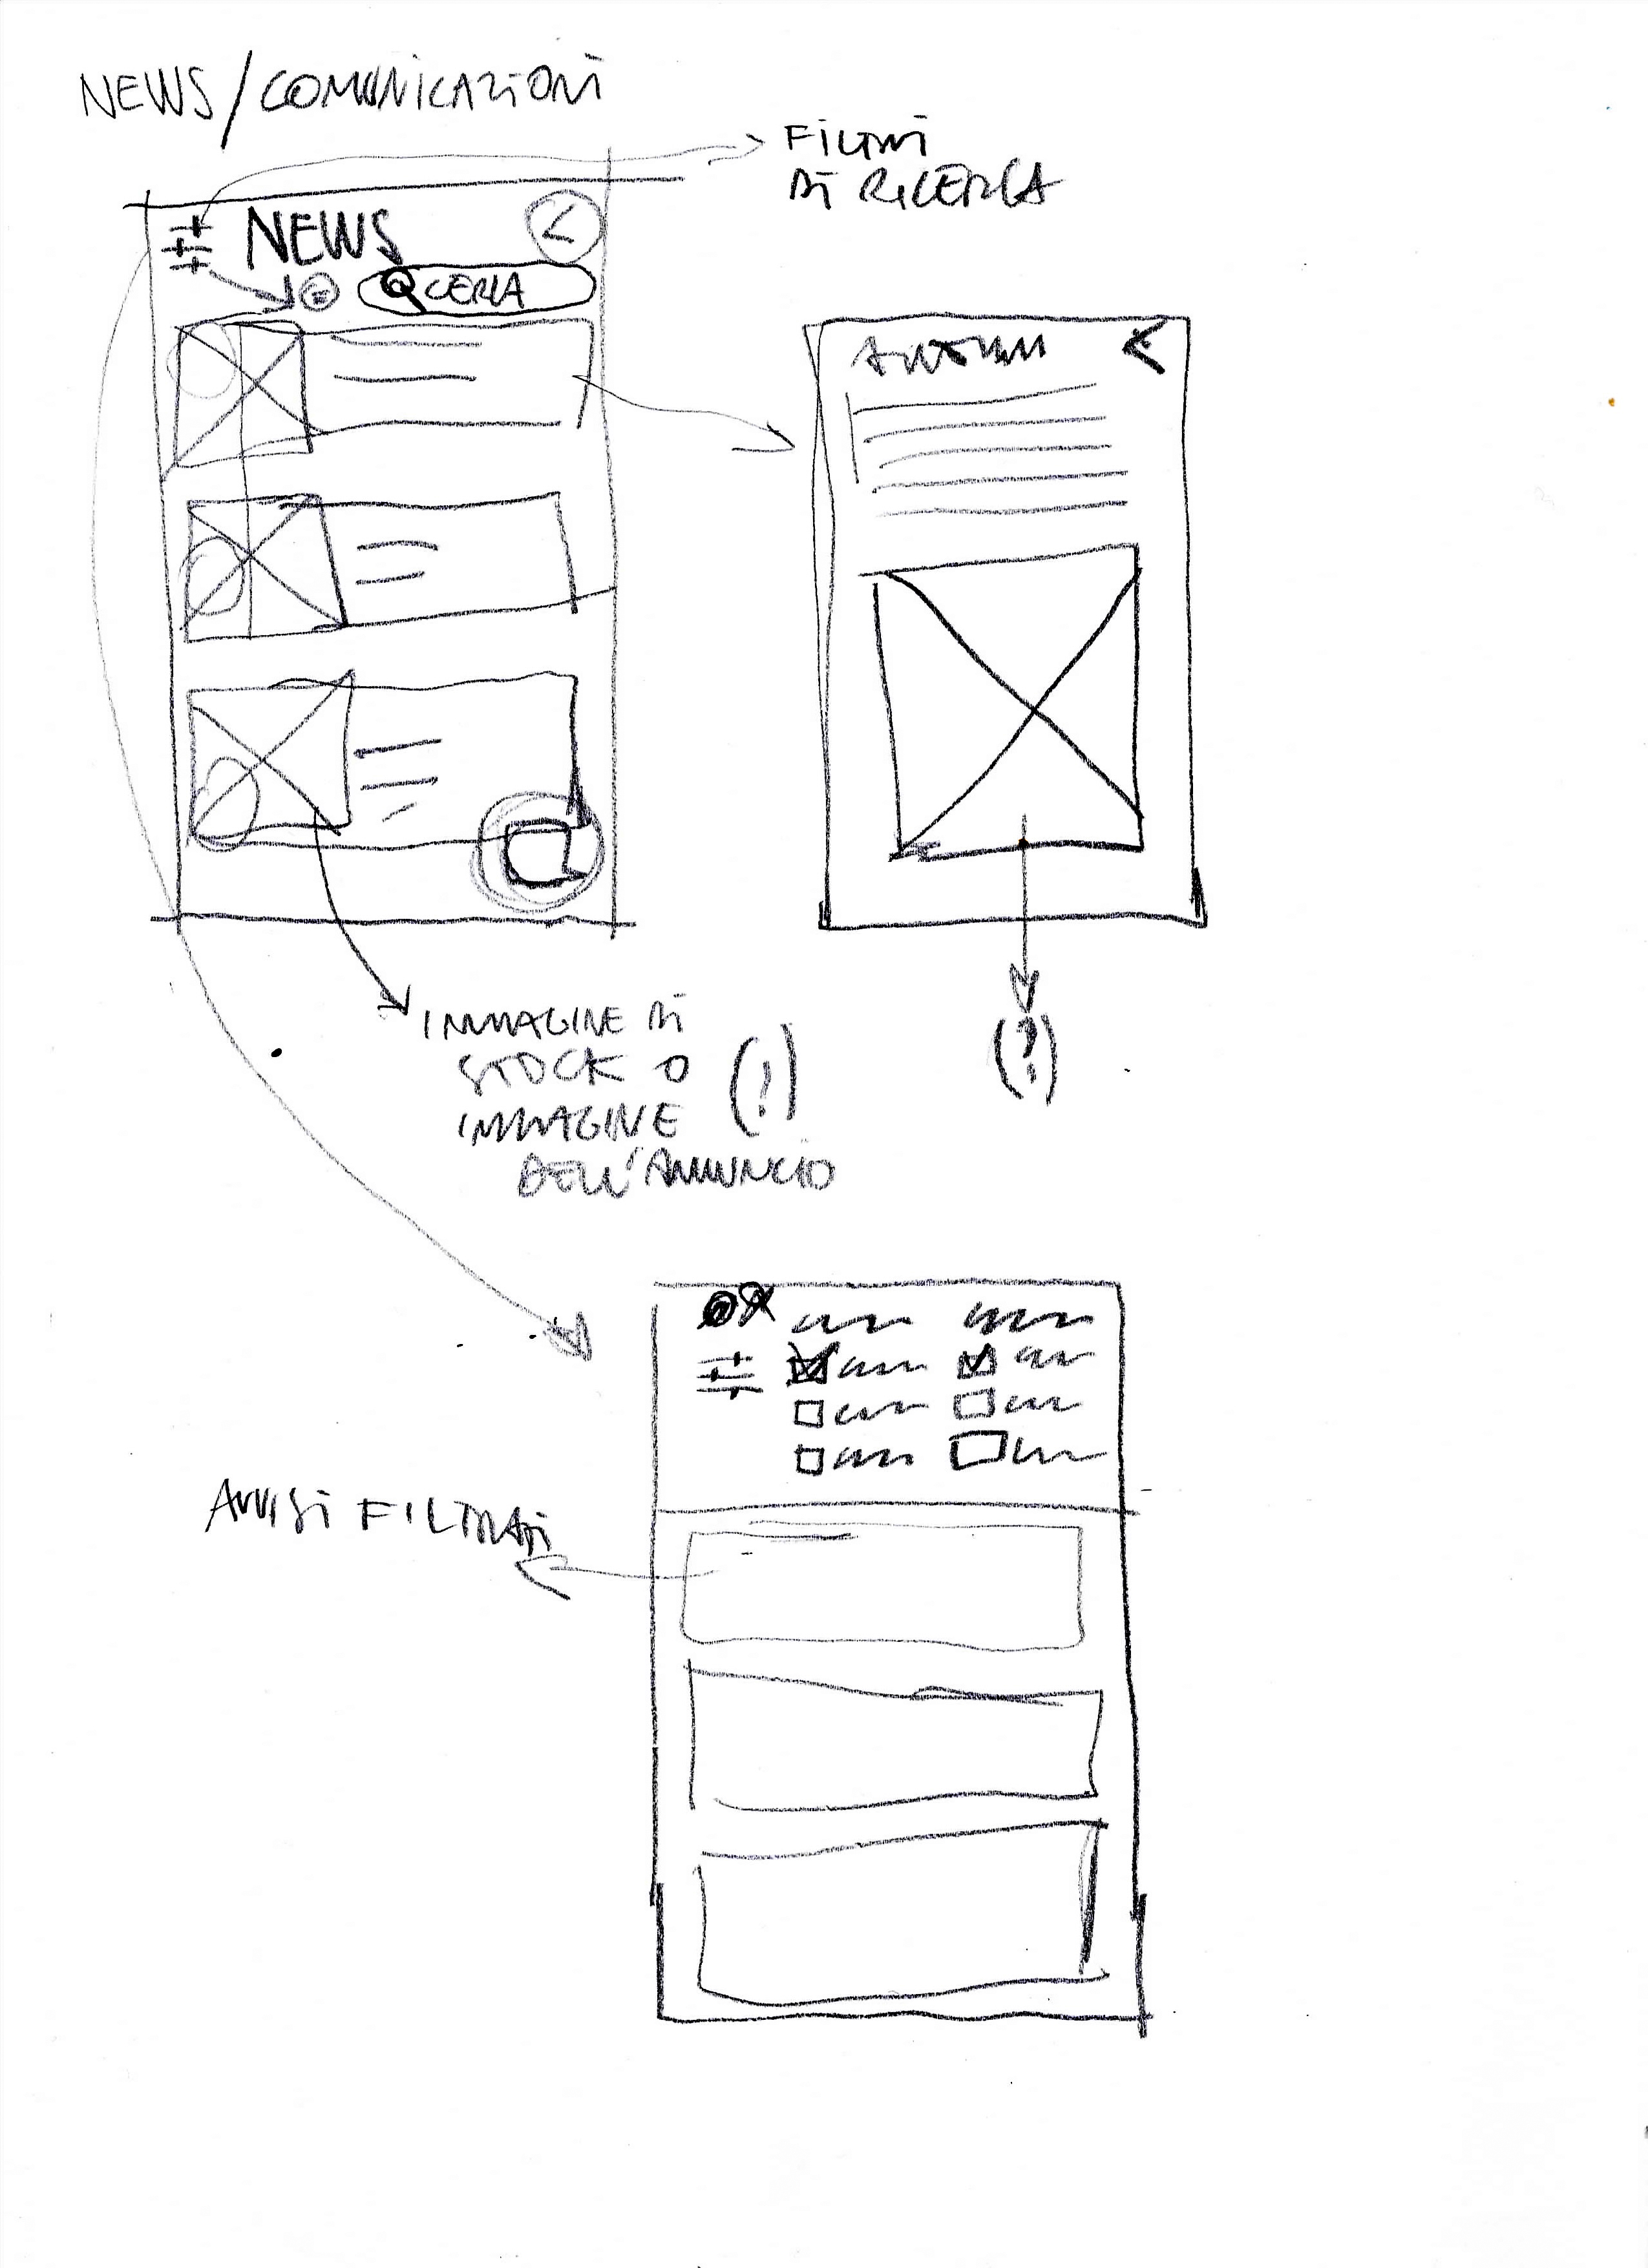 NEWS/COMUNICAZIONI
FILTRI
DI RICERCA
NEWS
CERCA
IMMAGINE DI
STOCK O
IMMAGINE
DELL'ANNUNCIO
(?)
(?)
AVVISI FILTRATI